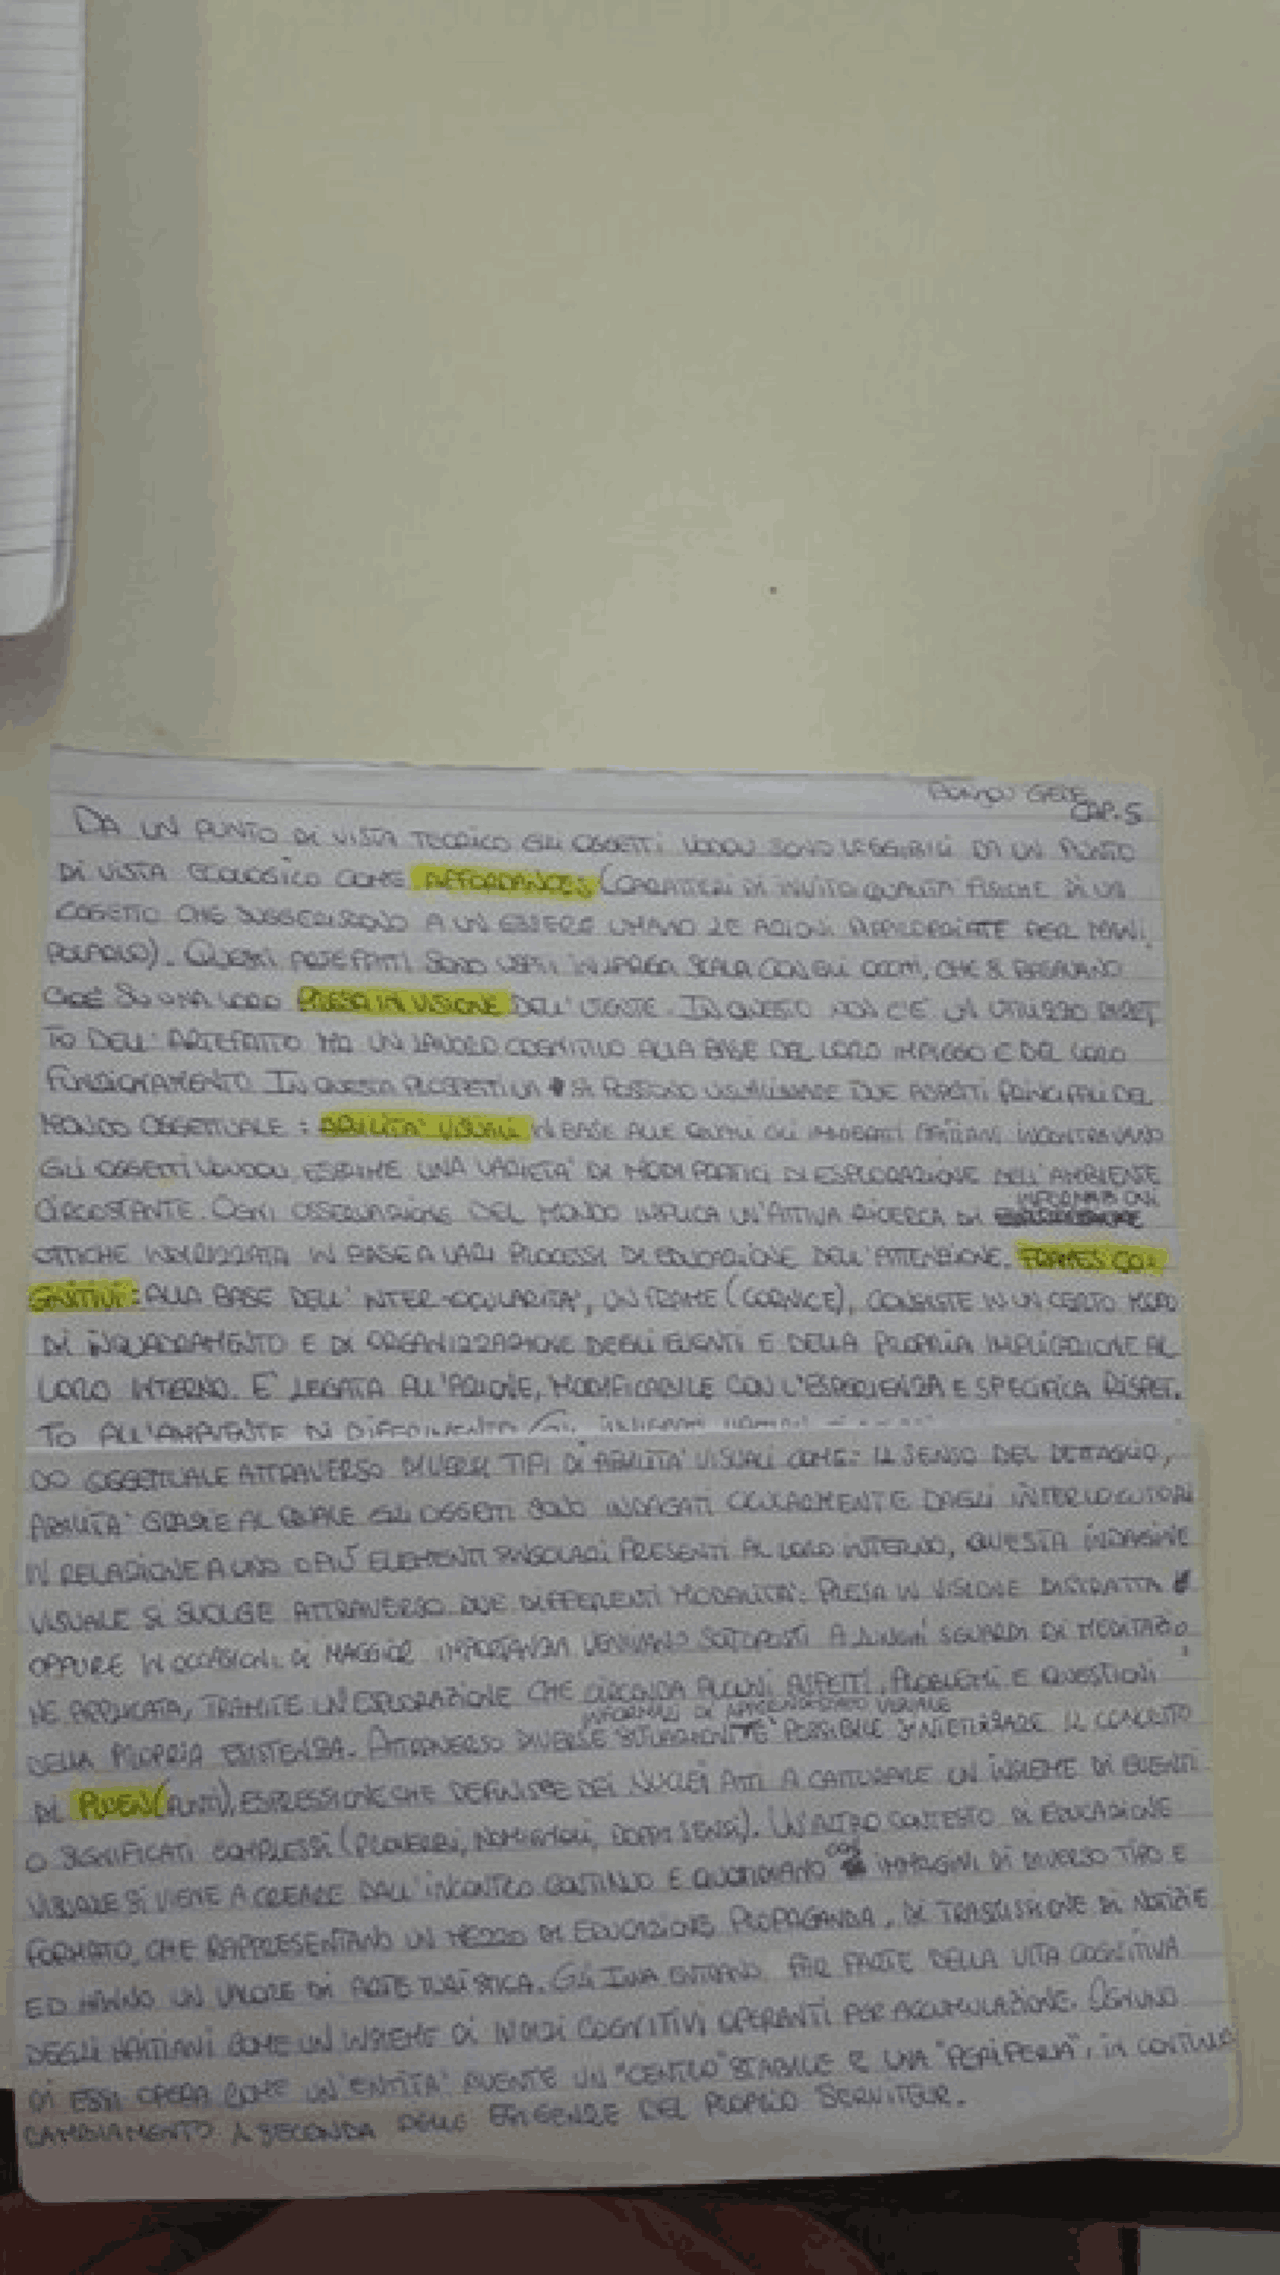 CAP. 5
DA UN PUNTO DI VISTA TEORICO GLI OGGETTI VODOU SONO LEGGIBILI DA UN PUNTO
DI VISTA ECOLOGICO COME AFFORDANCES (CARATTERI DI INVITO: QUALITÀ FISICHE DI UN
OGGETTO CHE SUGGERISCONO A UN ESSERE UMANO LE AZIONI APPROPRIATE PER MANI
POLARLO). QUESTI ARTEFATTI SONO USATI IN LARGA SCALA CON GLI OCCHI, CHE SI BASAVANO
CIOÈ SU UNA LORO PRESA IN VISIONE DELL'UTENTE. IN QUESTO NON C'È UN UTILIZZO DIRET
TO DELL'ARTEFATTO MA UN LAVORO COGNITIVO ALLA BASE DEL LORO IMPIEGO E DEL LORO
FUNZIONAMENTO. IN QUESTA PROSPETTIVA SI POSSONO VISUALIZZARE DUE ASPETTI PRINCIPALI DEL
MONDO OGGETTUALE: ABILITA' VISUALI IN BASE ALLE QUALI GLI IMMIGRATI HAITIANI INCONTRAVANO
GLI OGGETTI VOUDOU, ESPRIME UNA VARIETA' DI MODI PRATICI DI ESPLORAZIONE DELL'AMBIENTE
CIRCOSTANTE. OGNI OSSERVAZIONE DEL MONDO IMPLICA UN'ATTIVA RICERCA DI INFORMAZIONI
OTTICHE INDIRIZZATA IN BASE A VARI PROCESSI DI EDUCAZIONE DELL'ATTENZIONE. FRAMES CO
GNITIVI: ALLA BASE DELL'INTER-OCULARITA', UN FRAME (CORNICE), CONSISTE IN UN CERTO MODO
DI INQUADRAMENTO E DI ORGANIZZAZIONE DEGLI EVENTI E DELLA PROPRIA IMPLICAZIONE AL
LORO INTERNO. E' LEGATA ALL'AZIONE, MODIFICABILE CON L'ESPERIENZA E SPECIFICA RISPET.
TO ALL'AMBIENTE DI RIFERIMENTO. GLI
DO OGGETTUALE ATTRAVERSO DIVERSI TIPI DI ABILITA' VISUALI COME: IL SENSO DEL DETTAGLIO,
ABILITA' GRAZIE AL QUALE GLI OGGETTI SONO INDAGATI OCULARMENTE DAGLI INTERLOCUTORI
IN RELAZIONE A UNO O PIÙ ELEMENTI SINGOLARI PRESENTI AL LORO INTERNO, QUESTA INDAGINE
VISUALE SI SVOLGE ATTRAVERSO DUE DIFFERENTI MODALITA': PRESA IN VISIONE DISTRATTA
OPPURE IN OCCASIONI DI MAGGIOR IMPORTANZA VENIVANO SOTTOPOSTI A LUNGHI SGUARDI DI MEDITAZIO
NE APPLICATA, TRAMITE UN'ESPLORAZIONE CHE CIRCONDA ALCUNI ASPETTI, PROBLEMI E QUESTIONI
DELLA PROPRIA ESISTENZA. ATTRAVERSO DIVERSE SITUAZIONI INFORMALI DI APPRENDISTATO VISUALE E' POSSIBILE SINTETIZZARE IL CONCETTO
DI PWEN (PUNTI), ESPRESSIONE CHE DEFINISCE DEI NUCLEI ATTI A CATTURARE UN INSIEME DI EVENTI
O SIGNIFICATI COMPLESSI (PROVERBI, NOMIGNOLI, DOPPI SENSI). UN ALTRO CONTESTO DI EDUCAZIONE
VISUALE SI VIENE A CREARE DALL'INCONTRO CONTINUO E QUOTIDIANO CON IMMAGINI DI DIVERSO TIPO E
FORMATO, CHE RAPPRESENTANO UN MEZZO DI EDUCAZIONE, PROPAGANDA, DI TRASMISSIONE DI NOTIZIE
ED HANNO UN VALORE DI ARTE TURISTICA. GLI IWA ENTRANO FAR PARTE DELLA VITA COGNITIVA
DEGLI HAITIANI COME UN INSIEME DI INDIZI COGNITIVI OPERANTI PER ACCUMULAZIONE. OGNUNO
DI ESSI OPERA COME UN'ENTITA' AVENTE UN "CENTRO" STABILE E UNA "PERIFERIA", IN CONTINUO
CAMBIAMENTO A SECONDA DELLE ESIGENZE DEL PROPRIO SERVITEUR.